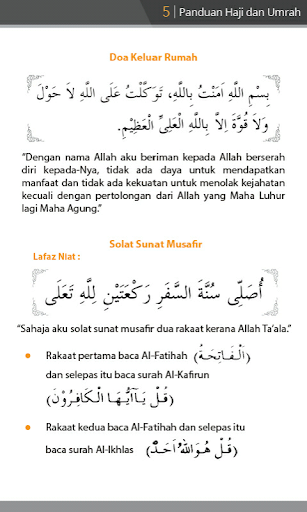 5 | Panduan Haji dan Umrah
Doa Keluar Rumah
بِسْمِ اللَّهِ اَمَنْتُ بِاللَّهِ، تَوَكَّلْتُ عَلَى اللَّهِ لاَ حَوْلَ
وَلاَ قُوَّةَ اِلاَّ بِاللَّهِ الْعَلِيِّ الْعَظِيْمِ.
“Dengan nama Allah aku beriman kepada Allah berserah
diri kepada-Nya, tidak ada daya untuk mendapatkan
manfaat dan tidak ada kekuatan untuk menolak kejahatan
kecuali dengan pertolongan dari Allah yang Maha Luhur
lagi Maha Agung.”
Solat Sunat Musafir
Lafaz Niat :
أُصَلِّى سُنَّةَ السَّفَرِ رَكْعَتَيْنِ لِلَّهِ تَعَلَى
“Sahaja aku solat sunat musafir dua rakaat kerana Allah Ta’ala.”
• Rakaat pertama baca Al-Fatihah (اَلْفَاتِحَةُ)
dan selepas itu baca surah Al-Kafirun
(قُلْ يَاآيُّهَا الْكَافِرُوْنَ)
• Rakaat kedua baca Al-Fatihah dan selepas itu
baca surah Al-Ikhlas (قُلْ هُوَ اللهُ اَحَدٌ)